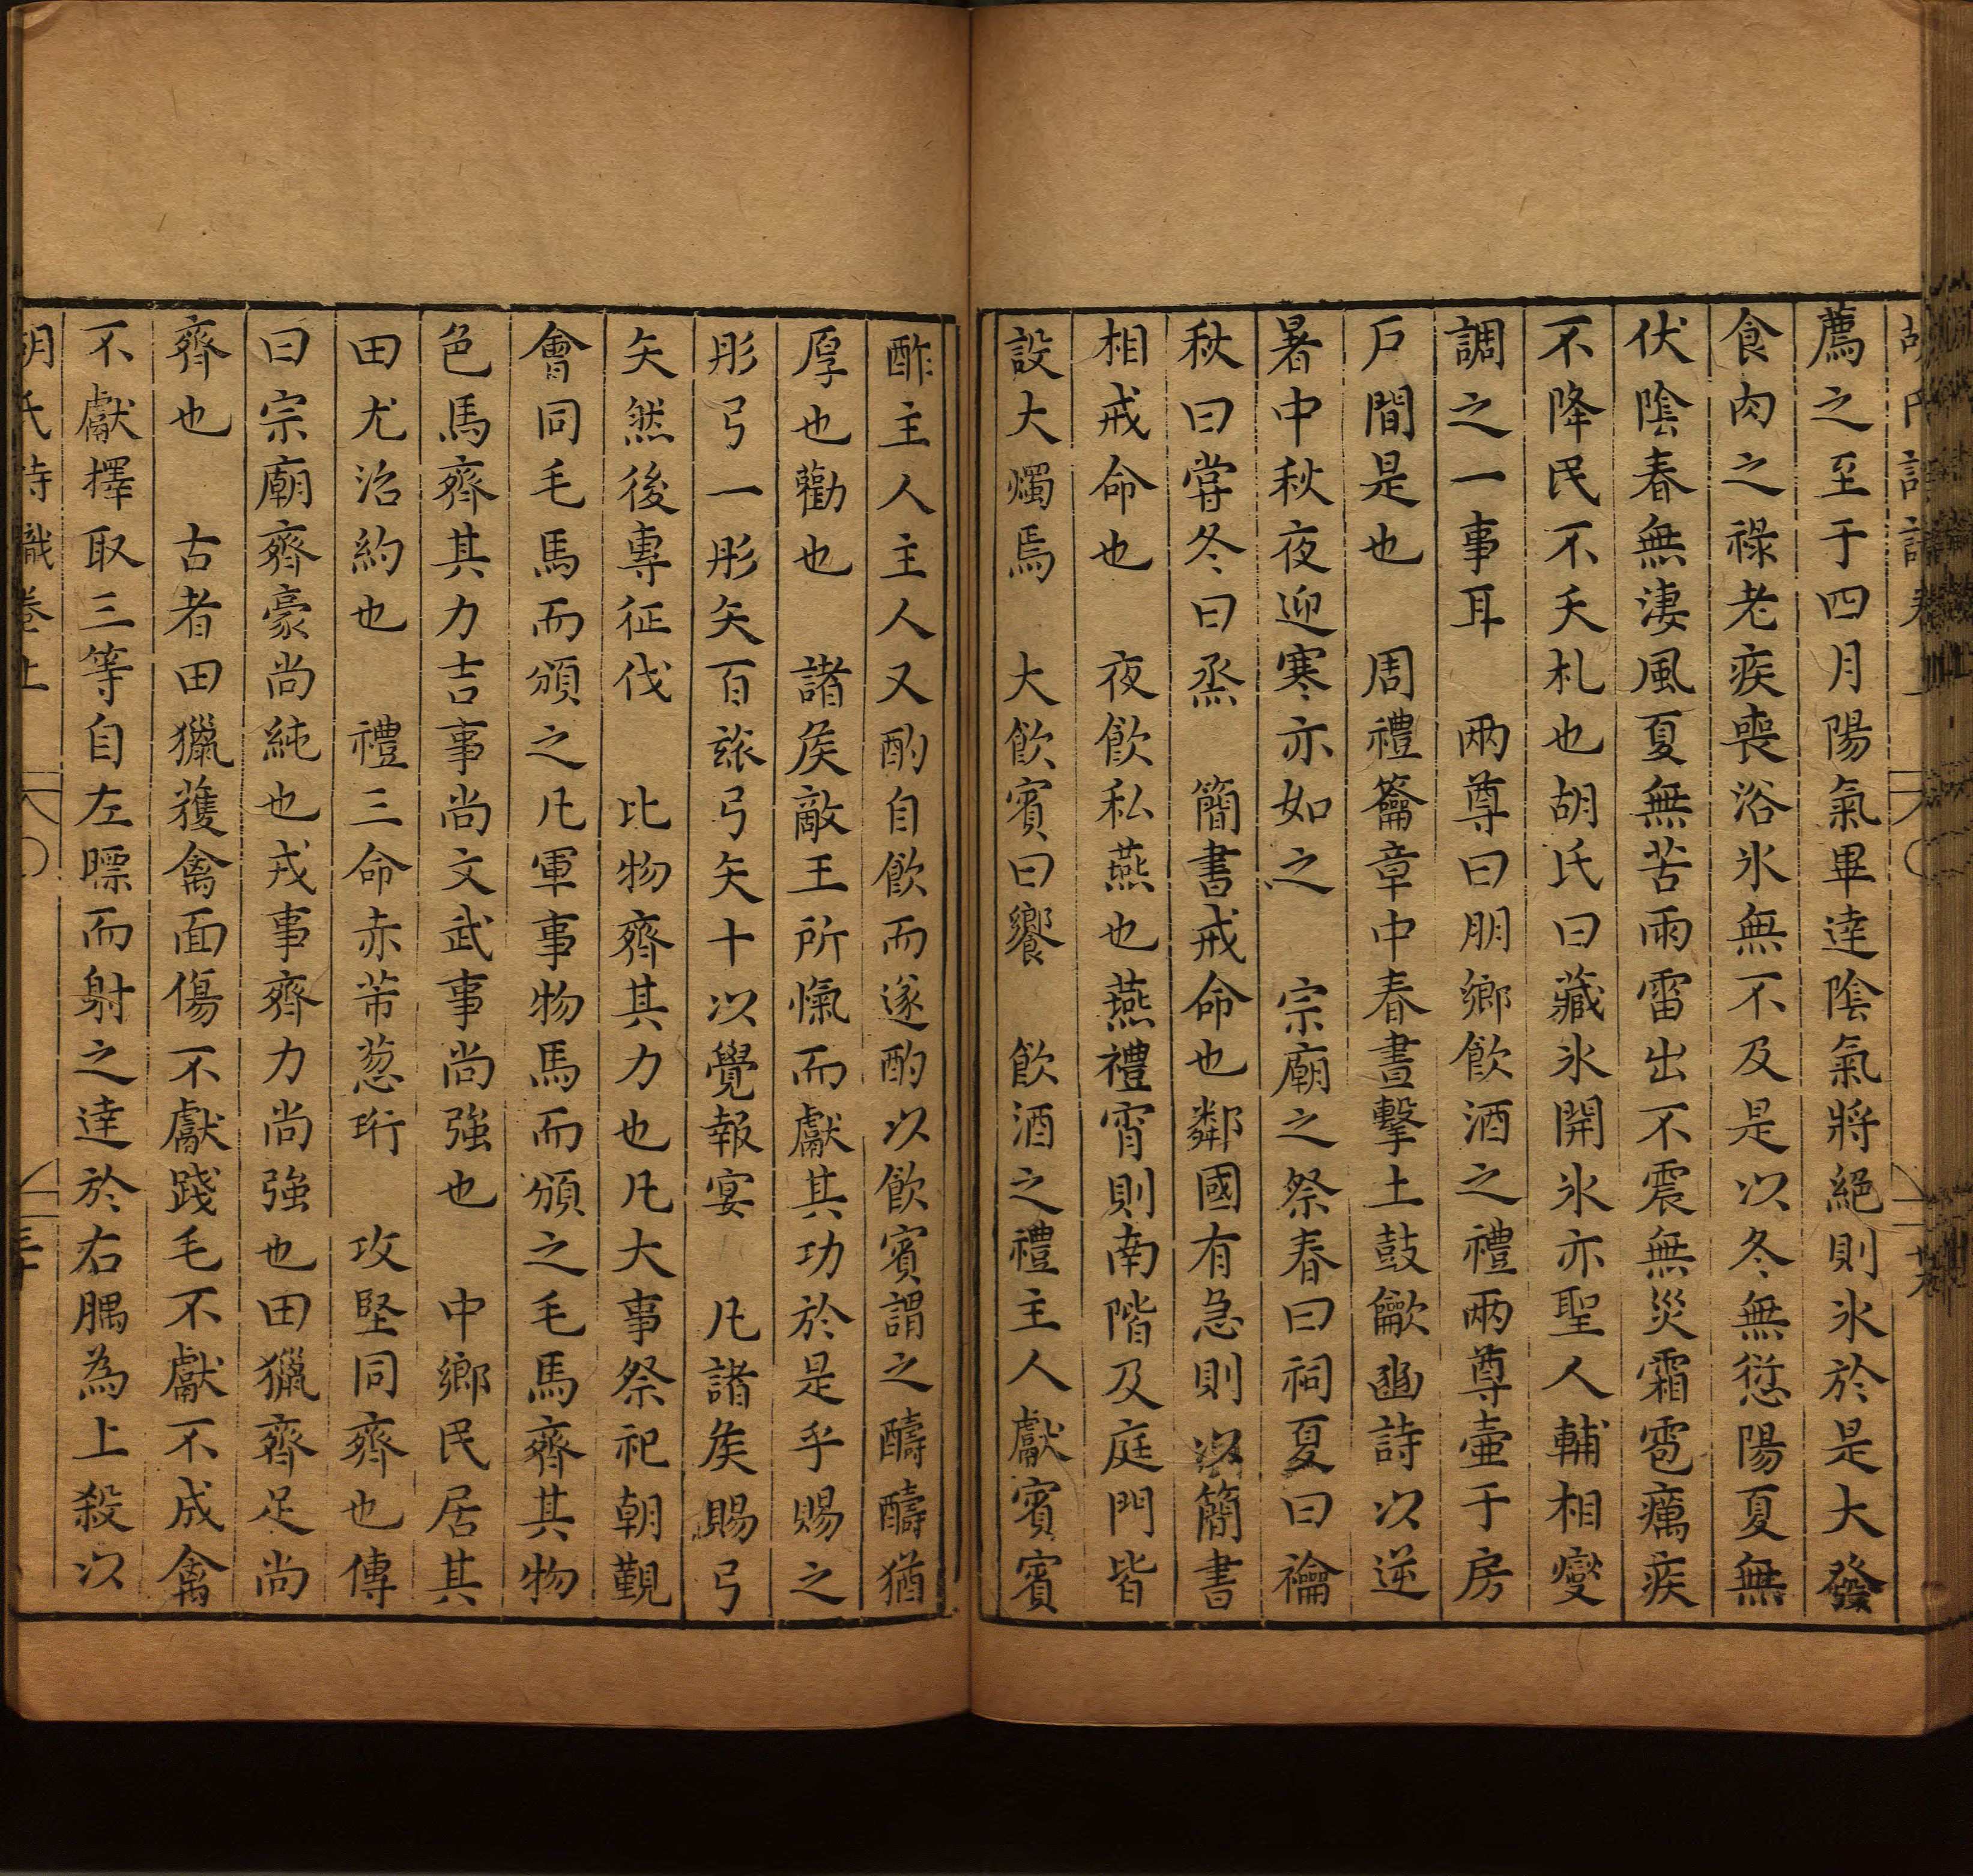 薦之至于四月陽氣畢達陰氣將絕則氷於是大發
食肉之祿老疾喪浴氷無不及是以冬無愆陽夏無
伏陰春無淒風夏無苦雨雷出不震無災霜雹癘疾
不降民不夭札也胡氏曰藏氷開氷亦聖人輔相燮
調之一事耳　兩尊曰朋鄉飲酒之禮兩尊壺于房
戶間是也　周禮籥章中春晝擊土鼓龡豳詩以逆
暑中秋夜迎寒亦如之　宗廟之祭春曰祠夏曰禴
秋曰嘗冬曰烝　簡書戒命也鄰國有急則以簡書
相戒命也　夜飲私燕也燕禮宵則南階及庭門皆
設大燭焉　大飲賓曰饗　飲酒之禮主人獻賓賓
酢主人主人又酌自飲而遂酌以飲賓謂之醻醻猶
厚也勸也　諸矦敵王所愾而獻其功於是乎賜之
彤弓一彤矢百玈弓矢十以覺報宴　凡諸矦賜弓
矢然後專征伐　比物齊其力也凡大事祭祀朝覲
會同毛馬而頒之凡軍事物馬而頒之毛馬齊其物
色馬齊其力吉事尚文武事尚強也　中鄉民居其
田尤治約也　禮三命赤芾葱珩　攻堅同齊也傳
曰宗廟齊豪尚純也戎事齊力尚強也田獵齊足尚
齊也　古者田獵獲禽面傷不獻踐毛不獻不成禽
不獻擇取三等自左膘而射之達於右腢為上殺以
氏詩識卷上